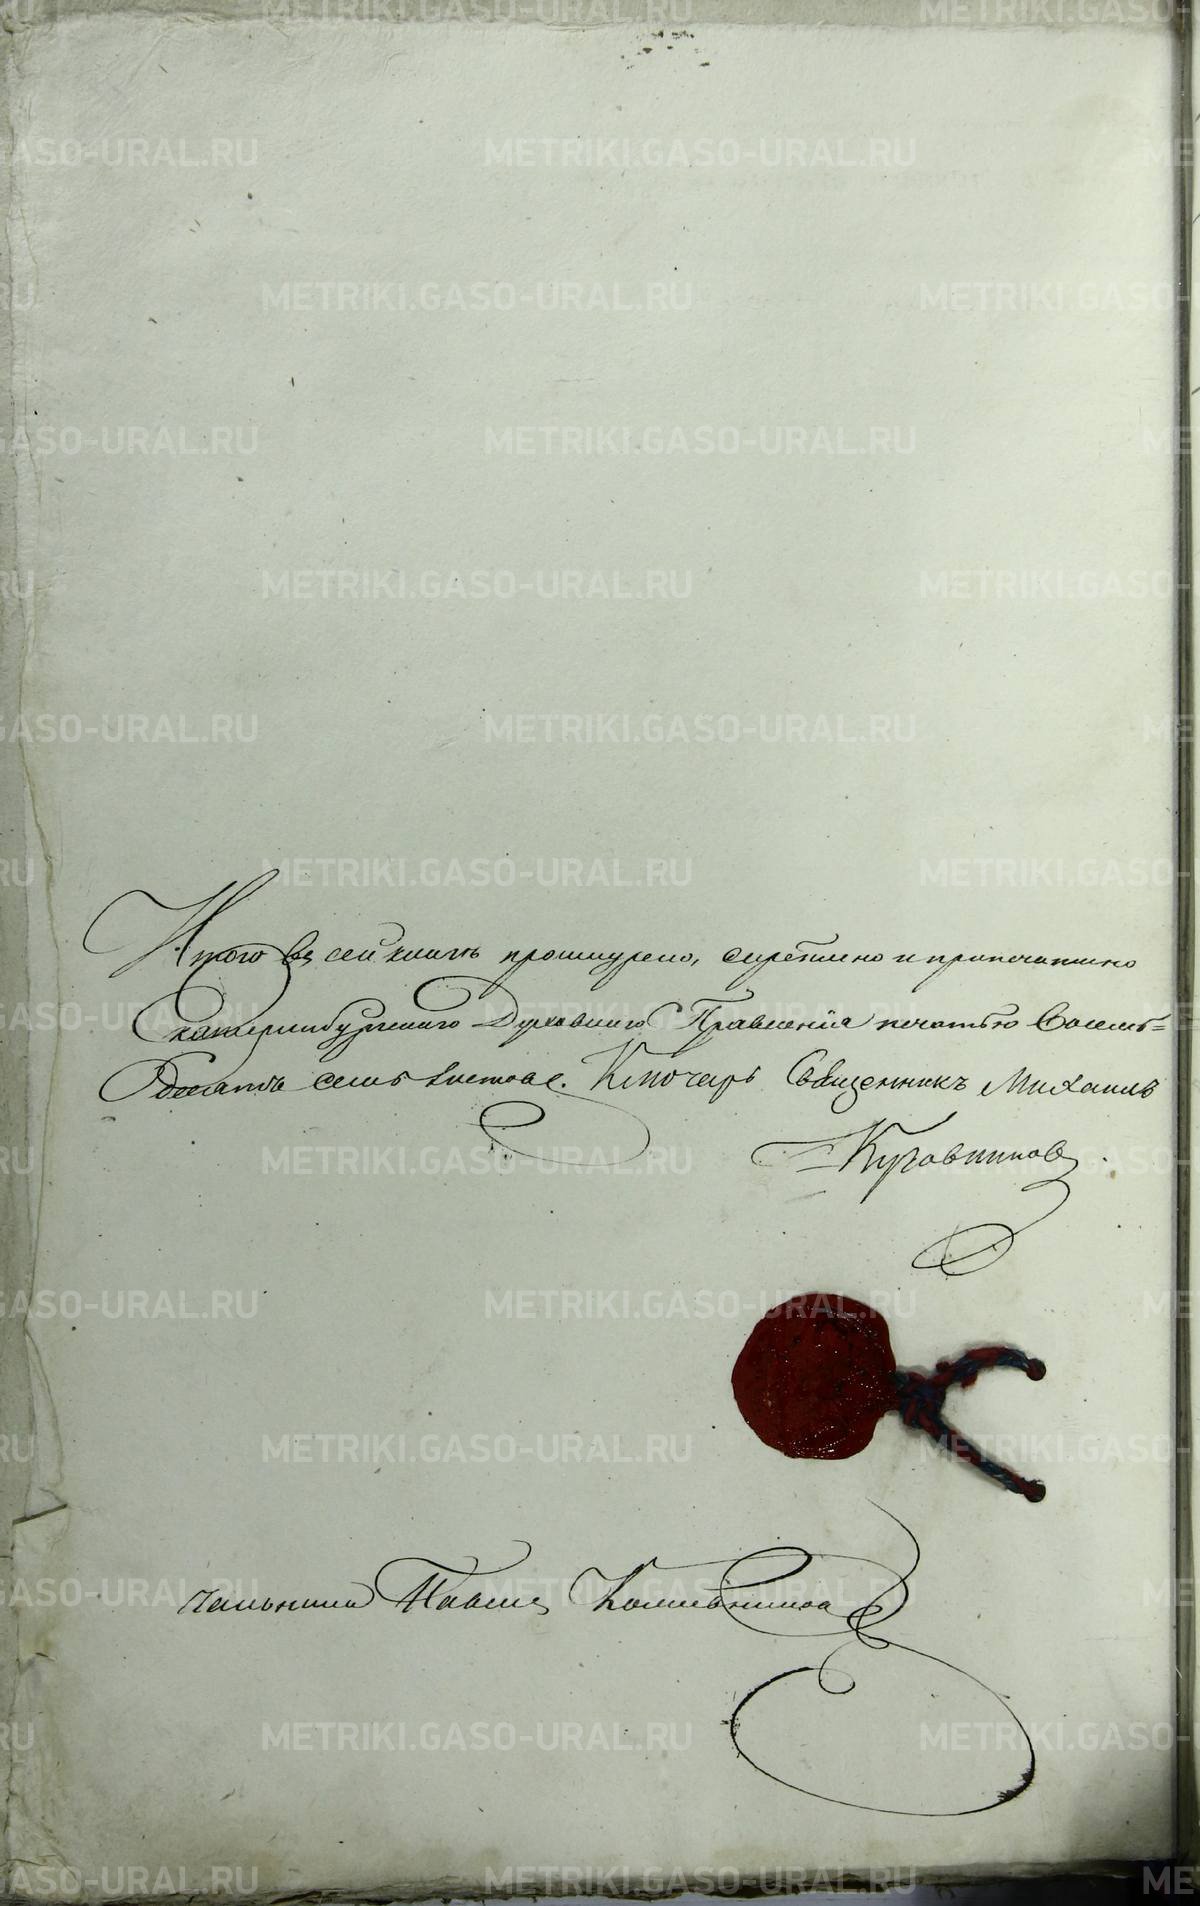 Итого въ сей книгѣ прошнурено, скрѣплено и припечатано
Екатеринбургскаго Духовнаго Правленія печатью Восемь=
десять семь листовъ. Ключарь Священникъ Михаилъ
Павелъ
METRIKI.GASO-URAL.RU